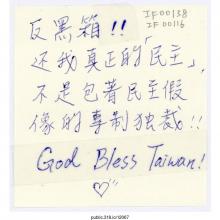 反黑箱!!
IF00138
IF00116
还我真正的「民主」,
不是包著民主假
像的專制独裁!!
God Bless Taiwan!
♡"
public.318.io/i2667